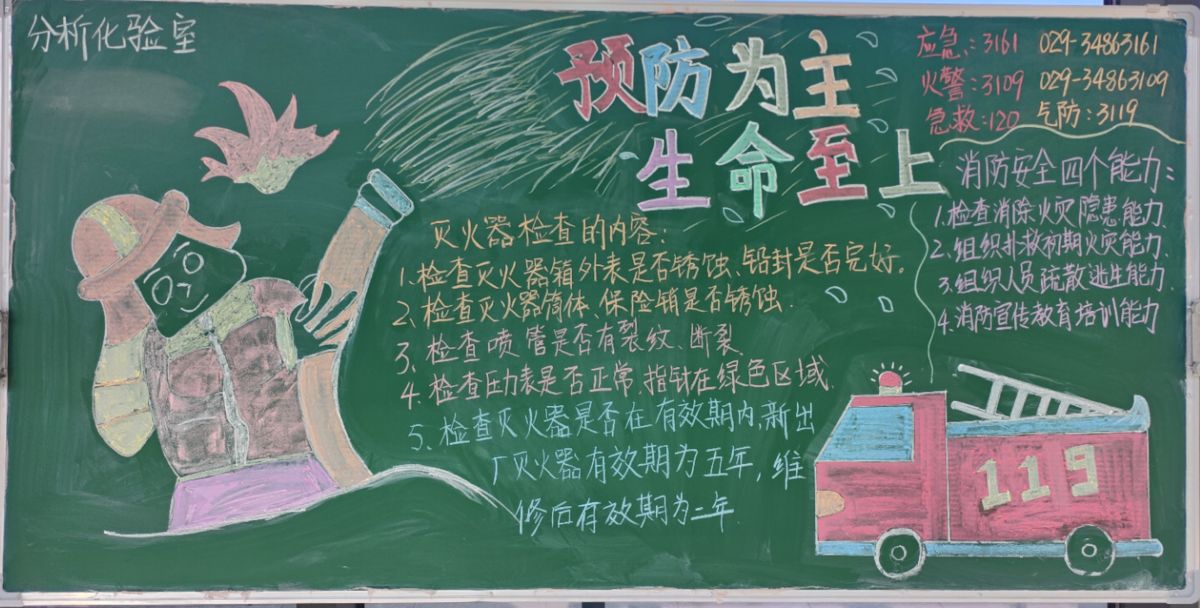 分析化验室
预防为主
生命至上
应急:3161 029-34863161
火警:3109 029-34863109
急救:120 气防:3119
消防安全四个能力:
1.检查消除火灾隐患能力
2.组织扑救初期火灾能力.
3.组织人员疏散逃生能力.
4.消防宣传教育培训能力
灭火器检查的内容:
1.检查灭火器箱外表是否锈蚀、铅封是否完好。
2、检查灭火器筒体、保险销是否锈蚀.
3、检查喷管是否有裂纹、断裂.
4、检查压力表是否正常,指针在绿色区域.
5、检查灭火器是否在有效期内,新出
厂灭火器有效期为五年,维
修后有效期为二年.
119